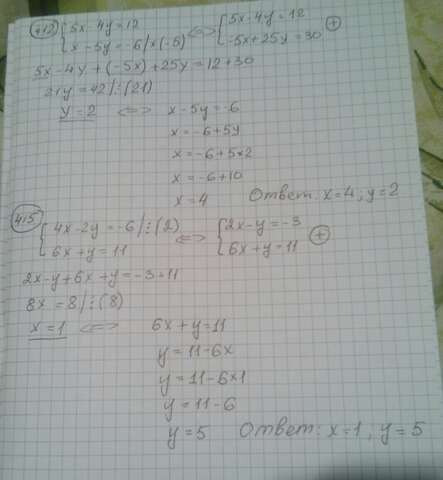 412) {5x-4y=12 <=> {5x-4y=12
{x-5y=-6/x(-5) {-5x+25y=30 (+)
5x-4y+(-5x)+25y=12+30
21y=42/:(21)
y=2 <=> x-5y=-6
x=-6+5y
x=-6+5×2
x=-6+10
x=4 Ответ: x=4; y=2
415) {4x-2y=-6/:(2) <=> {2x-y=-3
{6x+y=11 {6x+y=11 (+)
2x-y+6x+y=-3+11
8x=8/:(8)
x=1 <=> 6x+y=11
y=11-6x
y=11-6×1
y=11-6
y=5 Ответ: x=1; y=5